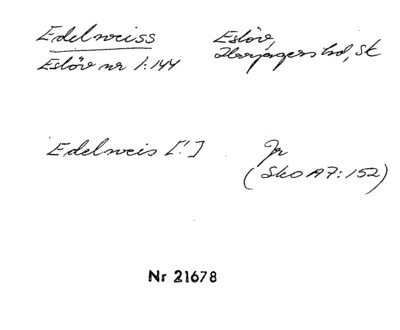 Edelweiss
Eslöv nr 1:144
Eslöv,
Harjagers hd, Sk
Edelweis [!]
Jr
(Sko A7:152)
Nr 21678